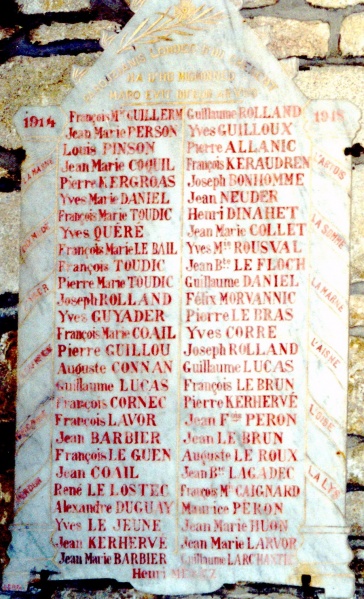 1914
1918
François Mie GUILLERM
Jean Marie PERSON
Louis PINSON
Jean Marie COQUIL
Pierre KERGROAS
Yves Marie DANIEL
François Marie TOUDIC
Yves QUÉRÉ
François Marie LE BAIL
François TOUDIC
Pierre Marie TOUDIC
Joseph ROLLAND
Yves GUYADER
François Marie COAIL
Pierre GUILLOU
Auguste CONNAN
Guillaume LUCAS
François CORNEC
François LAVOR
Jean BARBIER
François LE GUEN
Jean COAIL
René LE LOSTEC
Alexandre DUGUAY
Yves LE JEUNE
Jean KERHERVÉ
Jean Marie BARBIER
Guillaume ROLLAND
Yves GUILLOUX
Pierre ALLANIC
François KERAUDREN
Joseph BONHOMME
Jean NEUDER
Henri DINAHET
Jean Marie COLLET
Yves Mie ROUSVAL
Jean Bte LE FLOCH
Guillaume DANIEL
Félix MORVANNIC
Pierre LE BRAS
Yves CORRE
Joseph ROLLAND
Guillaume LUCAS
François LE BRUN
Pierre KERHERVÉ
Jean Fçois PERON
Jean LE BRUN
Auguste LE ROUX
Jean Bte LAGADEC
François Mie CAIGNARD
Maurice PERON
Jean Marie HUON
Jean Marie LARVOR
Guillaume LARCHANTEC
Henri
LA MARNE
YSER
VERDUN
ARTOIS
LA SOMME
LA MARNE
L'AISNE
L'OISE
LA LYS